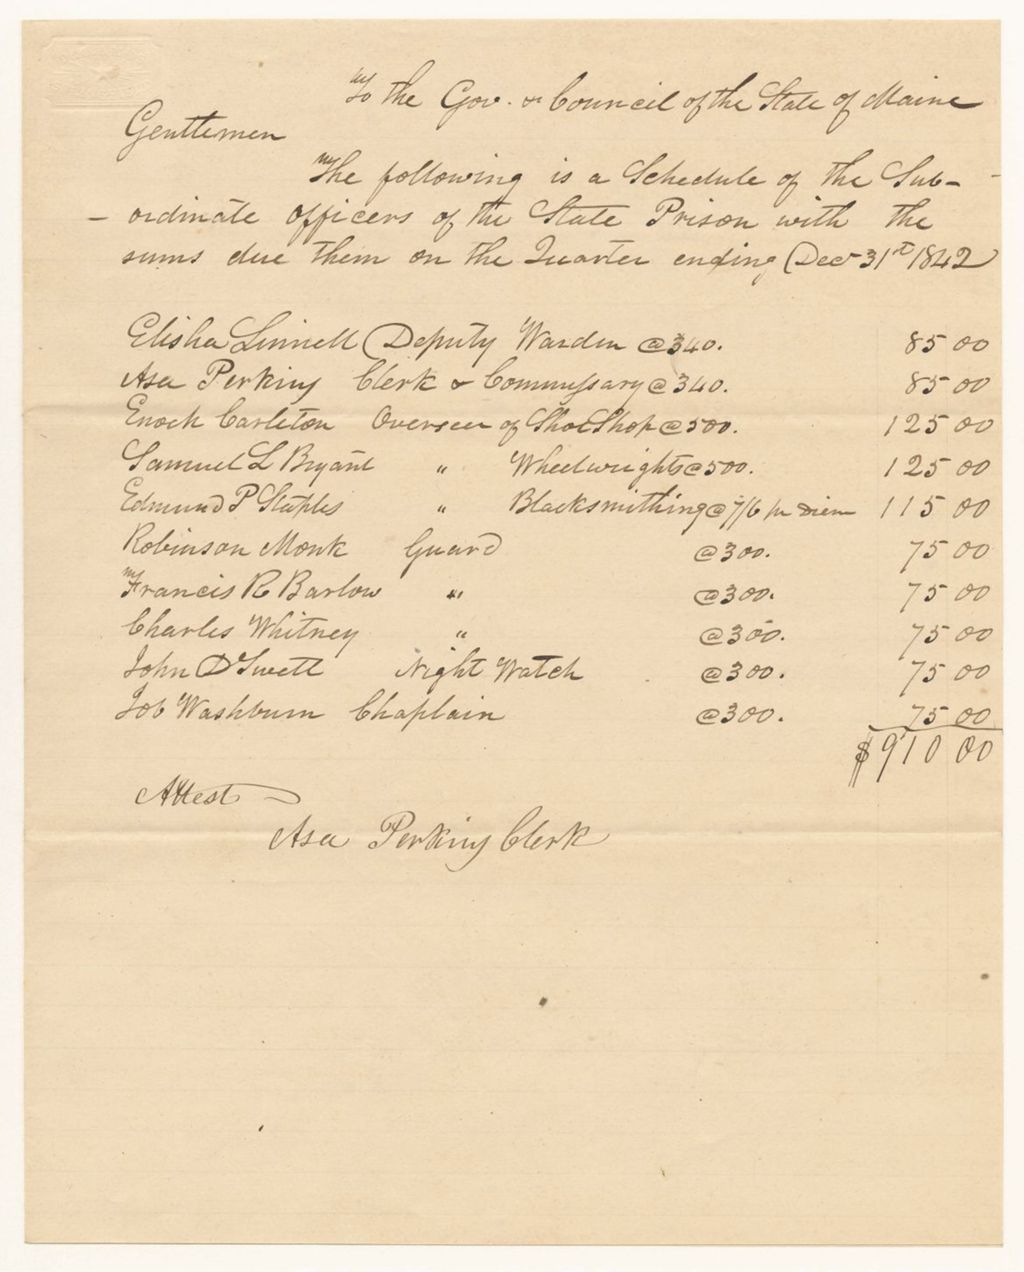 To the Gov. & Council of the State of Maine
Gentlemen
The following is a Schedule of the Sub-
- ordinate officers of the State Prison with the
sums due them on the Quarter ending Dec 31st 1842
Elisha Linnell Deputy Warden @ 340. 85 00
Asa Perkins Clerk & Commissary @ 340. 85 00
Enoch Carleton Overseer of Shoe Shop @ 500. 125 00
Samuel L Bryant " Wheelwrights @ 500. 125 00
Edmund P Staples " Blacksmithing @ 7/6 pr Diem 115 00
Robinson Monk Guard @ 300. 75 00
Francis R Barlow " @ 300. 75 00
Charles Whitney " @ 300. 75 00
John D Swett Night Watch @ 300. 75 00
Job Washburn Chaplain @ 300. 75 00
$910 00
Attest
Asa Perkins Clerk